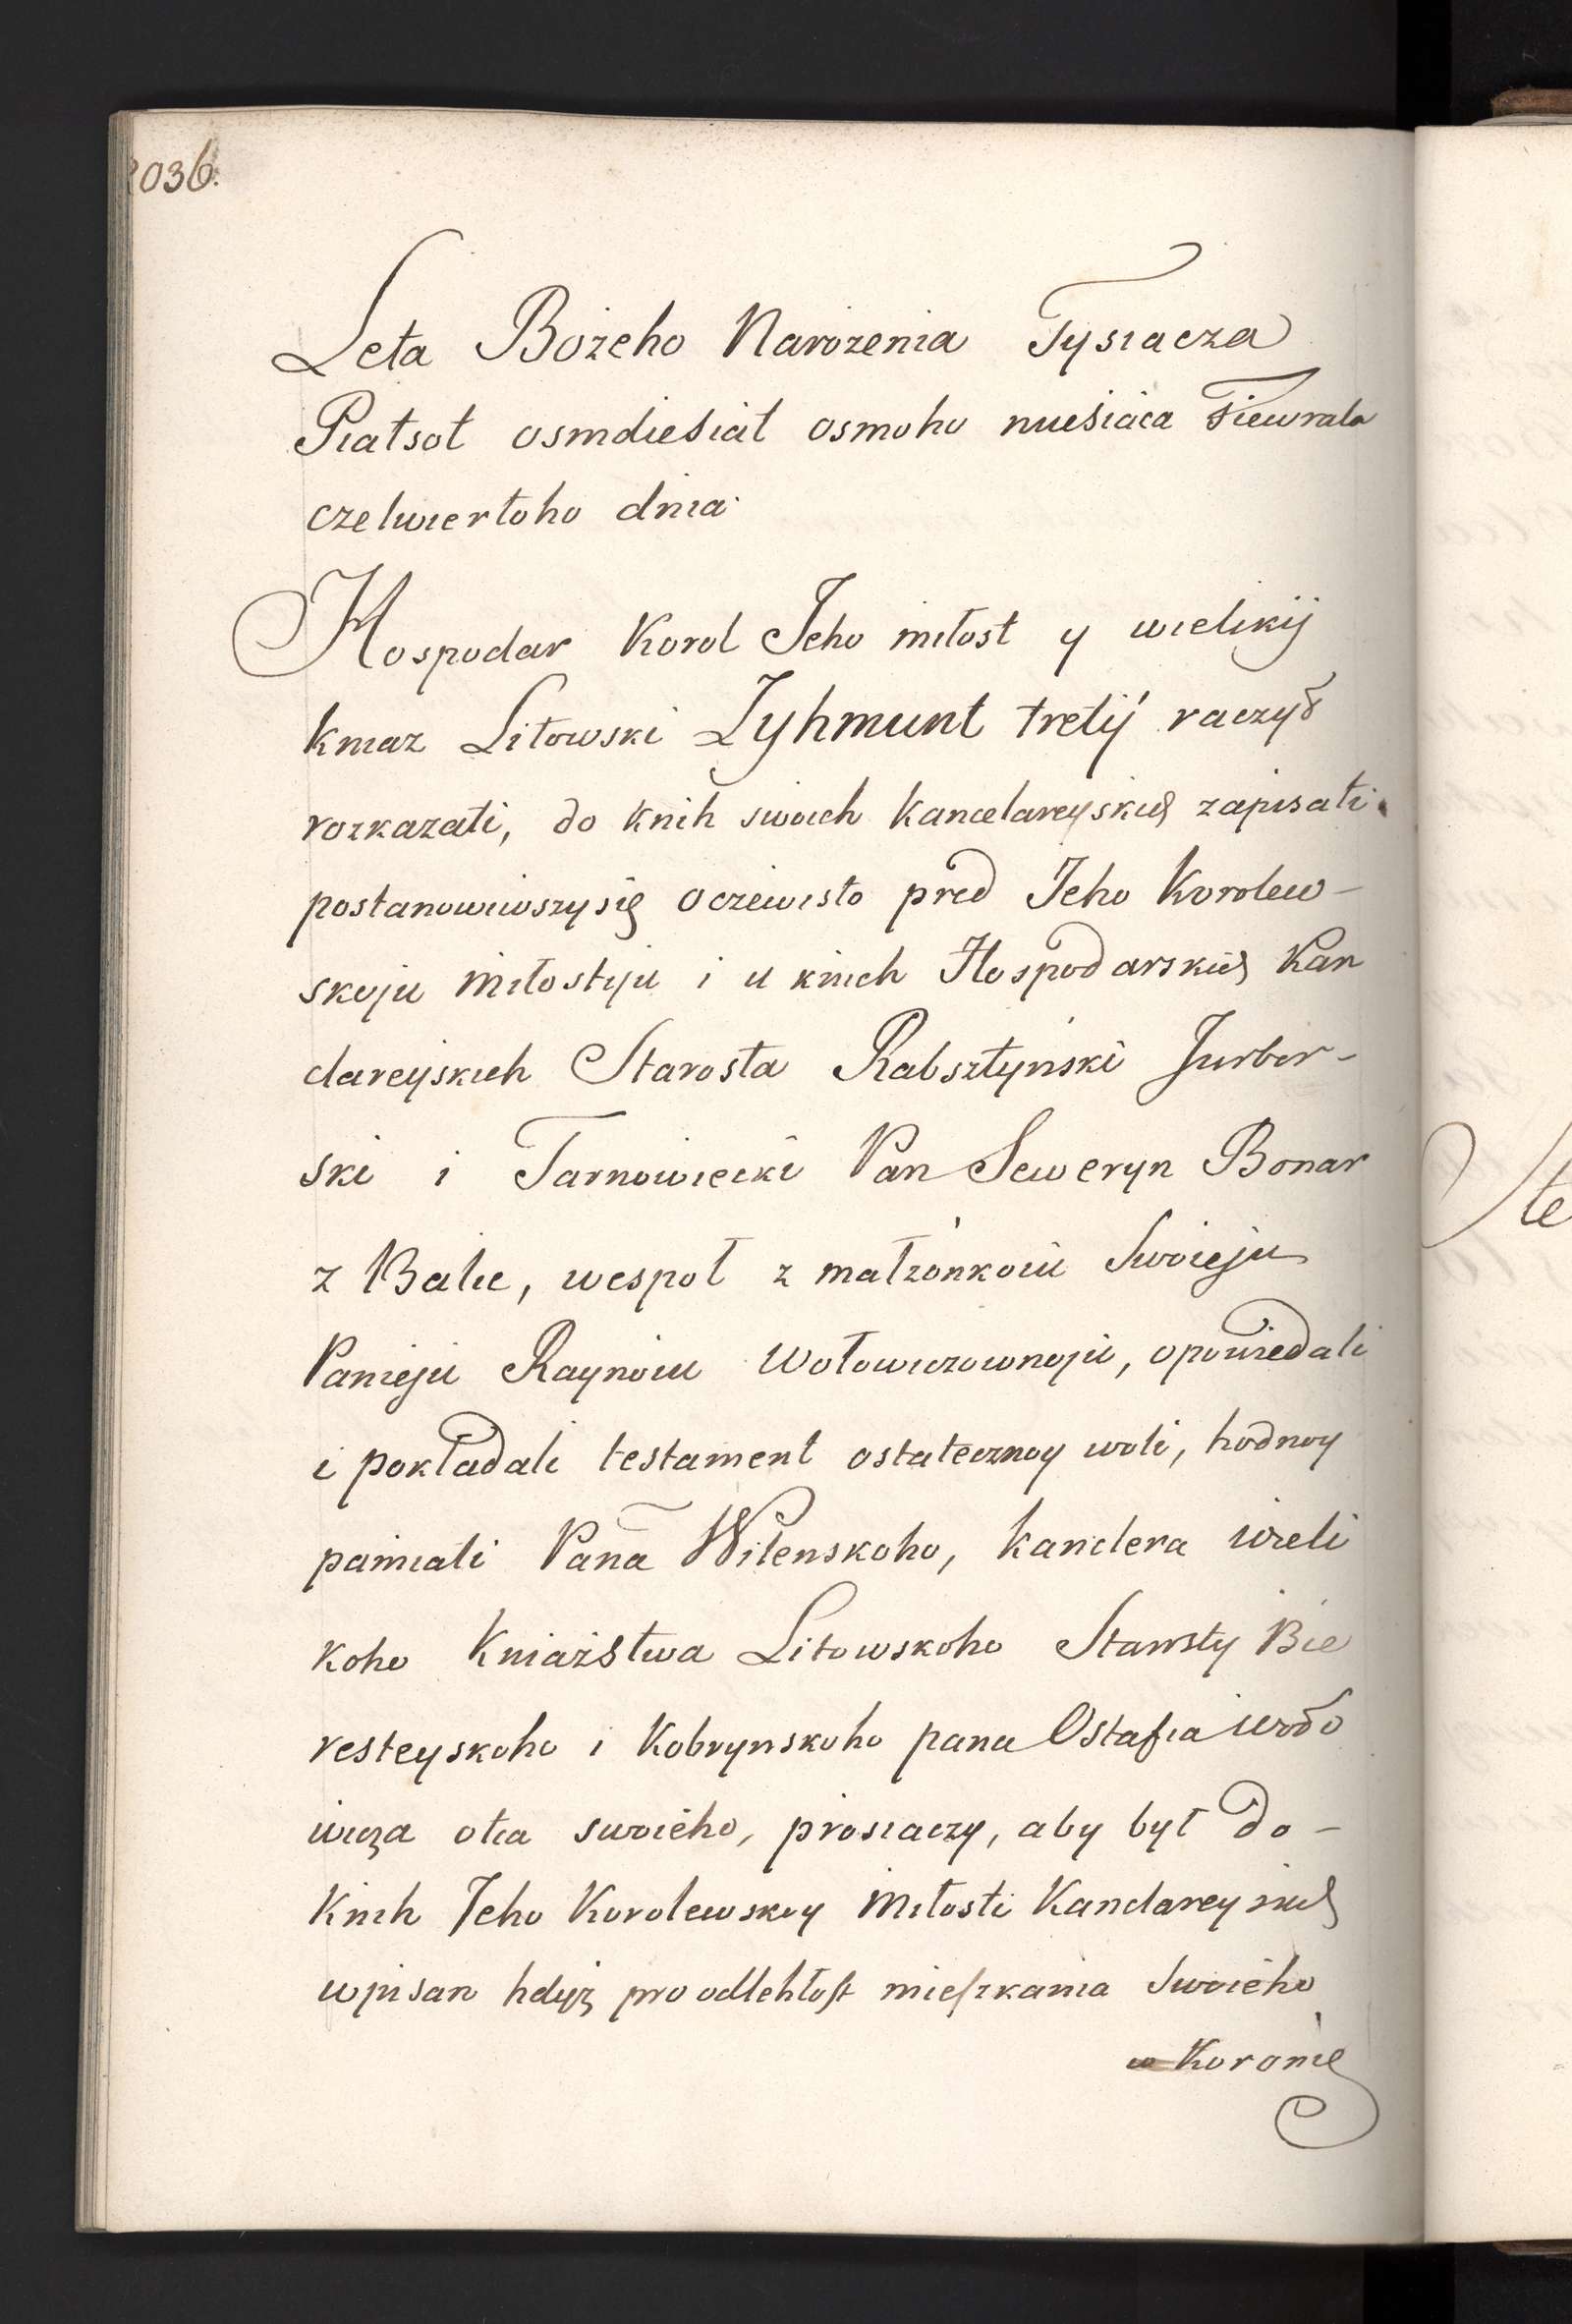 2036.
Leta Bożeho Narożenia Tysiacza
Piatsot osmdiesiat osmoho miesiaca Fiewrala
czetwertoho dnia
Hospodar Korol Jeho miłost y wielikij
kniaz Litowski Zyhmunt tretij raczył
rozkazati, do knih swoich kancelareyskich zapisati
postanowiwszy się oczewisto pred Jeho Korolew-
skoju Miłostiju i u knich Hospodarskich Kan
clareyskich Starosta Rabsztynski Jurbor-
ski i Tarnowiecki Pan Seweryn Bonar
z Balic, wespoł z małżonkoiu Swoieju
Panieju Raynoiu Wołowiczownoju, opowiedali
i pokładali testament ostatecznoy woli, hodnoy
pamiati Pana Wilenskoho, kanclera wieli
koho Kniażstwa Litowskoho Starosty Bie
resteyskoho i Kobrynskoho pana Ostafia Woło
wicza otca swoieho, prosiaczy, aby był do-
Knih Jeho Korolewskoy Miłosti Kanclareyskich
wpisan hdyż pro odlehłost mieszkania Swoieho
w Koronie